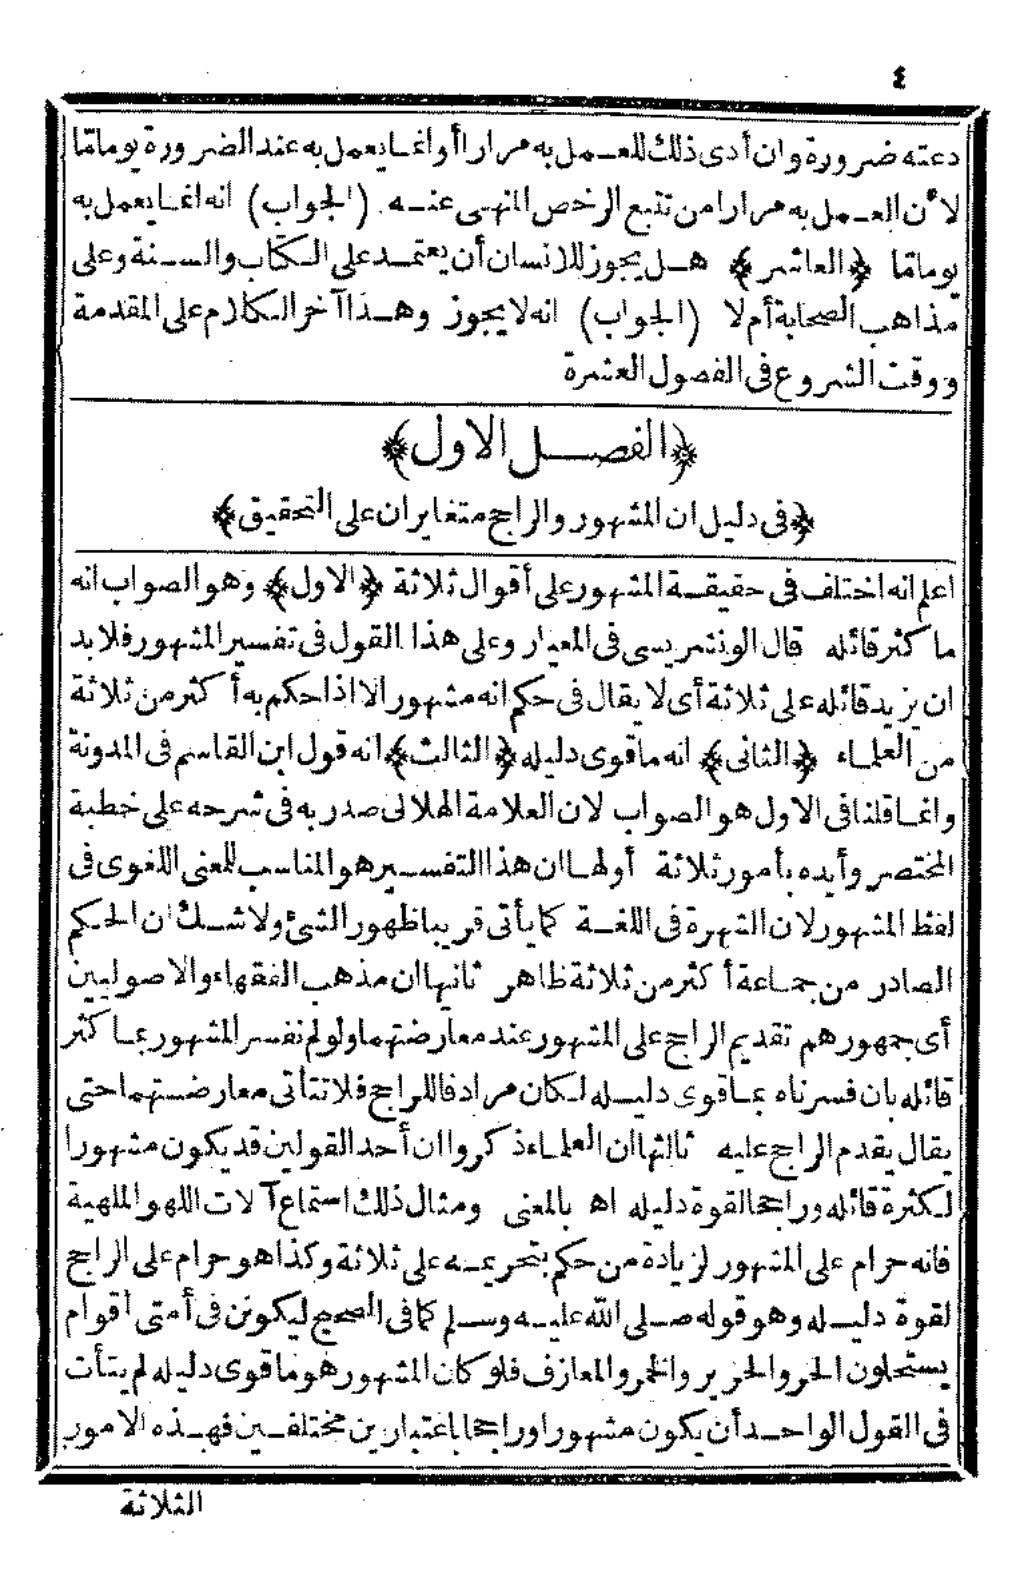 ٤
دعته ضرورة وان أدى ذلك للعمل به مرارا أو انما يعمل به عند الضرورة يوما ما
لأن العمل به مرارا من تتبع الرخص المنهى عنه (الجواب) انه انما يعمل به
يوما ما ﴿العاشر﴾ هل يجوز للانسان أن يعتمد على الكتاب والسنة وعلى
مذاهب الصحابة أم لا (الجواب) انه لا يجوز وهذا آخر الكلام على المقدمة
ووقت الشروع فى الفصول العشرة
﴿الفصل الاول﴾
﴿فى دليل ان المشهور والراجح متغايران على التحقيق﴾
اعلم انه اختلف فى حقيقة المشهور على أقوال ثلاثة ﴿الاول﴾ وهو الصواب انه
ما كثر قائله قال الونشريسى فى المعيار وعلى هذا القول فى تفسير المشهور فلا بد
ان يزيد قائله على ثلاثة أى لا يقال فى حكم انه مشهور الا اذا حكم به أكثر من ثلاثة
من العلماء ﴿الثانى﴾ انه ما قوى دليله ﴿الثالث﴾ انه قول ابن القاسم فى المدونة
وانما قلنا فى الاول هو الصواب لان العلامة الهلالى صدر به فى شرحه على خطبة
المختصر وأيده بأمور ثلاثة أولها ان هذا التفسير هو المناسب للمعنى اللغوى فى
لفظ المشهور لان الشهرة فى اللغة كما يأتى قريبا ظهور الشئ ولا شك ان الحكم
الصادر من جماعة أكثر من ثلاثة ظاهر ثانيها ان مذهب الفقهاء والاصوليين
أى جمهورهم تقديم الراجح على المشهور عند معارضتهما ولو لم نفسر المشهور بما كثر
قائله بان فسرناه بما قوى دليله لكان مرادفا للراجح فلا تتأتى معارضتهما حتى
يقال يقدم الراجح عليه ثالثها ان العلماء ذكروا ان أحد القولين قد يكون مشهورا
لكثرة قائله وراجحا لقوة دليله اه بالمعنى ومثال ذلك استماع آلات اللهو الملهية
فانه حرام على المشهور لزيادة من حكم بتحريمه على ثلاثة وكذا هو حرام على الراجح
لقوة دليله وهو قوله صلى الله عليه وسلم كما فى الصحيح ليكونن فى أمتى أقوام
يستحلون الحر والحرير والخمر والمعازف فلو كان المشهور هو ما قوى دليله لم يتأت
فى القول الواحد أن يكون مشهورا وراجحا باعتبارين مختلفين فهذه الامور
الثلاثة